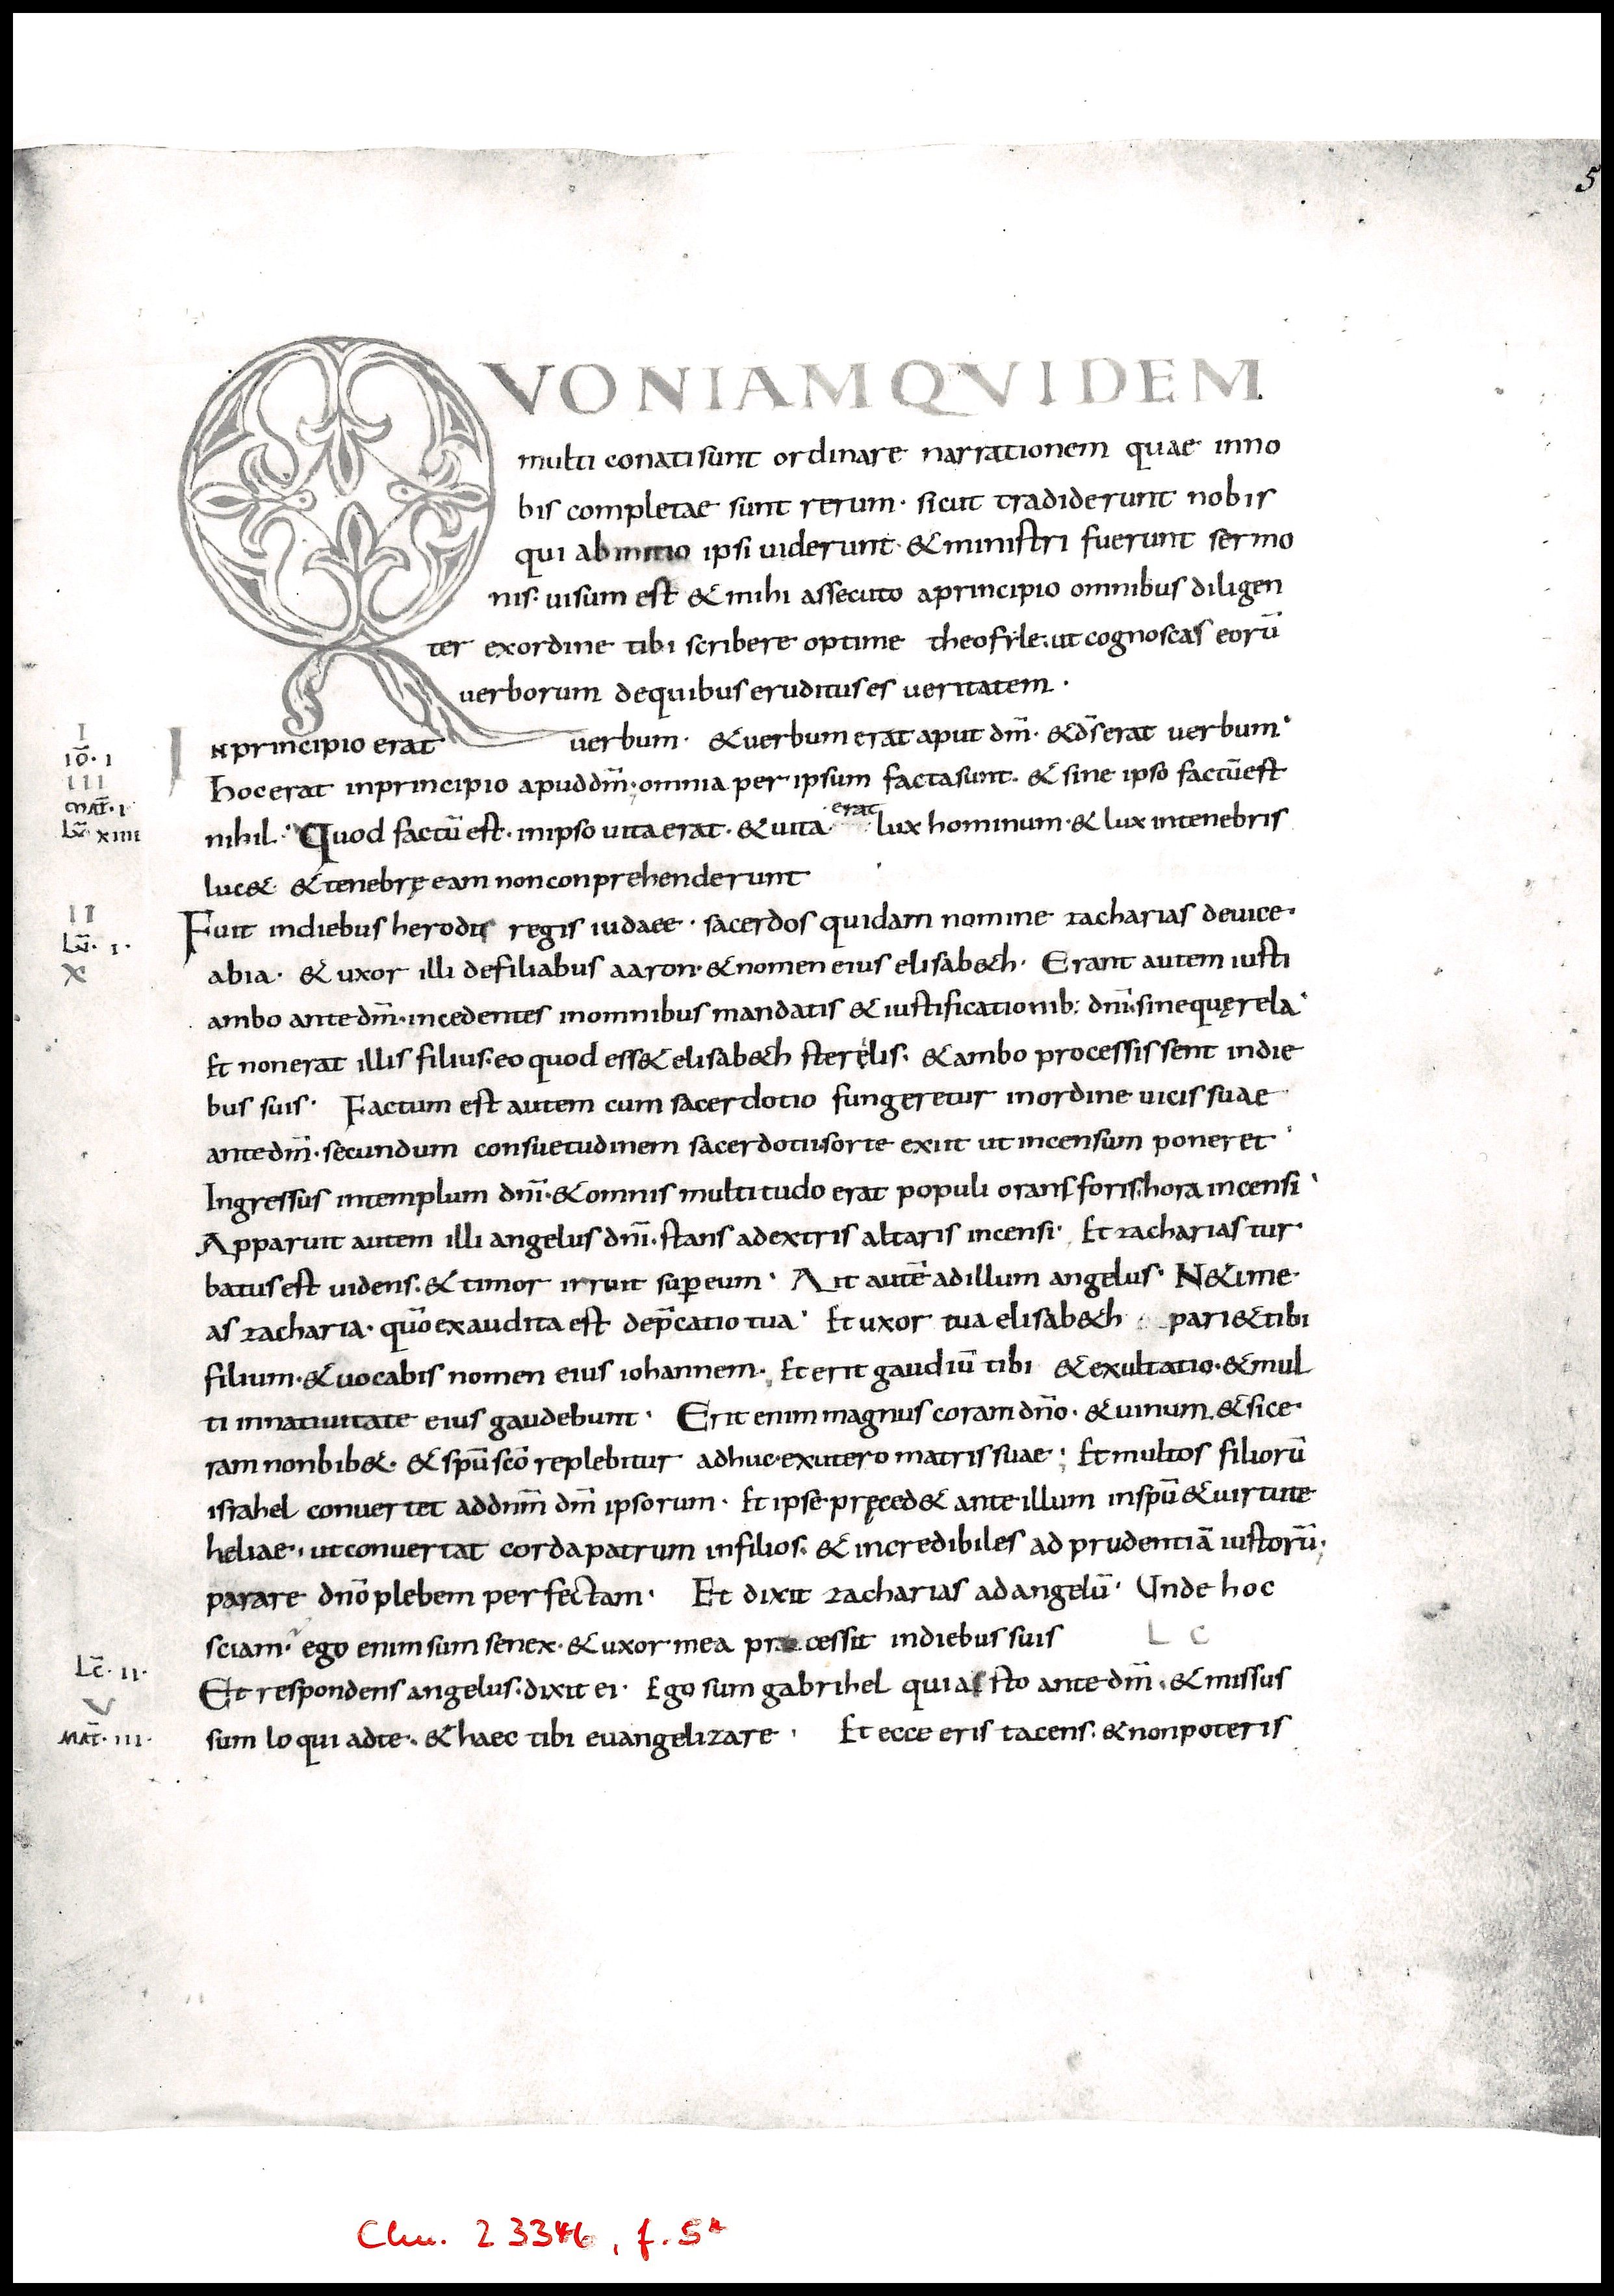 5
QVONIAMQVIDEM
multi conatisunt ordinare narrationem quae inno
bis completae sunt rerum· sicut tradiderunt nobis
qui abinitio ipsi uiderunt· &ministri fuerunt sermo
nis· uisum est &mihi assecuto aprincipio omnibus diligen
ter exordine tibi scribere optime theofile· ut cognoscas eorū
uerborum dequibus eruditus es ueritatem·
I
Inprincipio erat uerbum· &uerbum erat aput dm̄· &ds̄ erat uerbum·
IO̅·I
III
Hocerat inprincipio apuddm̄· omnia per ipsum factasunt· & sine ipso factūest
MAT̅·I
LC̅·XIIII
nihil· Quod factū est· inipso uitaerat· &uita· erat lux hominum· & lux intenebris
luc& &tenebrę eam nonconprehenderunt
II
Fuit indiebus herodis regis iudaee· sacerdos quidam nomine zacharias deuice
LC̅·I·
X
abia· & uxor illi defiliabus aaron· &nomen eius elisab&h· Erant autem iusti
ambo antedm̄· incedentes inomnibus mandatis & iustificationib: dnī· sinequęrela·
Et nonerat illis filius· eo quod ess& elisab&h sterelis· &ambo processissent indie
bus suis· Factum est autem cum sacerdotio fungeretur inordine uicis suae
antedm̄· secundum consuetudinem sacerdotii· sorte exiit ut incensum poneret·
Ingressus intemplum dnī· &omnis multitudo erat populi orans foris· hora incensi·
Apparuit autem illi angelus dnī· stans adextris altaris incensi· Et zacharias tur
batus est uidens· & timor irruit sup̄eum· Ait autē adillum angelus· N&ime
as zacharia· quō exaudita est dep̄catio tua· Et uxor tua elisab&h pari&tibi
filium· &uocabis nomen eius iohannem· Et erit gaudiū tibi &exultatio· &mul
ti innatiuitate eius gaudebunt· Erit enim magnus coram dnō· &uinum &sice
ram nonbib&· &spū scō replebitur adhuc exutero matris suae; Et multos filiorū
israhel conuertet addnm̄ dm̄ ipsorum· Et ipse pręced& ante illum inspū &uirtute
heliae· utconuertat cordapatrum infilios· & incredibiles ad prudentiā iustorū;
parare dnō plebem perfectam· Et dixit zacharias adangelū· Unde hoc
sciam· ego enim sum senex· &uxor mea processit indiebus suis L C
LC̅·II·
Et respondens angelus· dixit ei· Ego sum gabrihel qui asto ante dm̄· &missus
V
MAT̅·III·
sum loqui adte· &haec tibi euangelizare· Et ecce eris tacens· &nonpoteris
Clm. 23346, f. 5ʳ